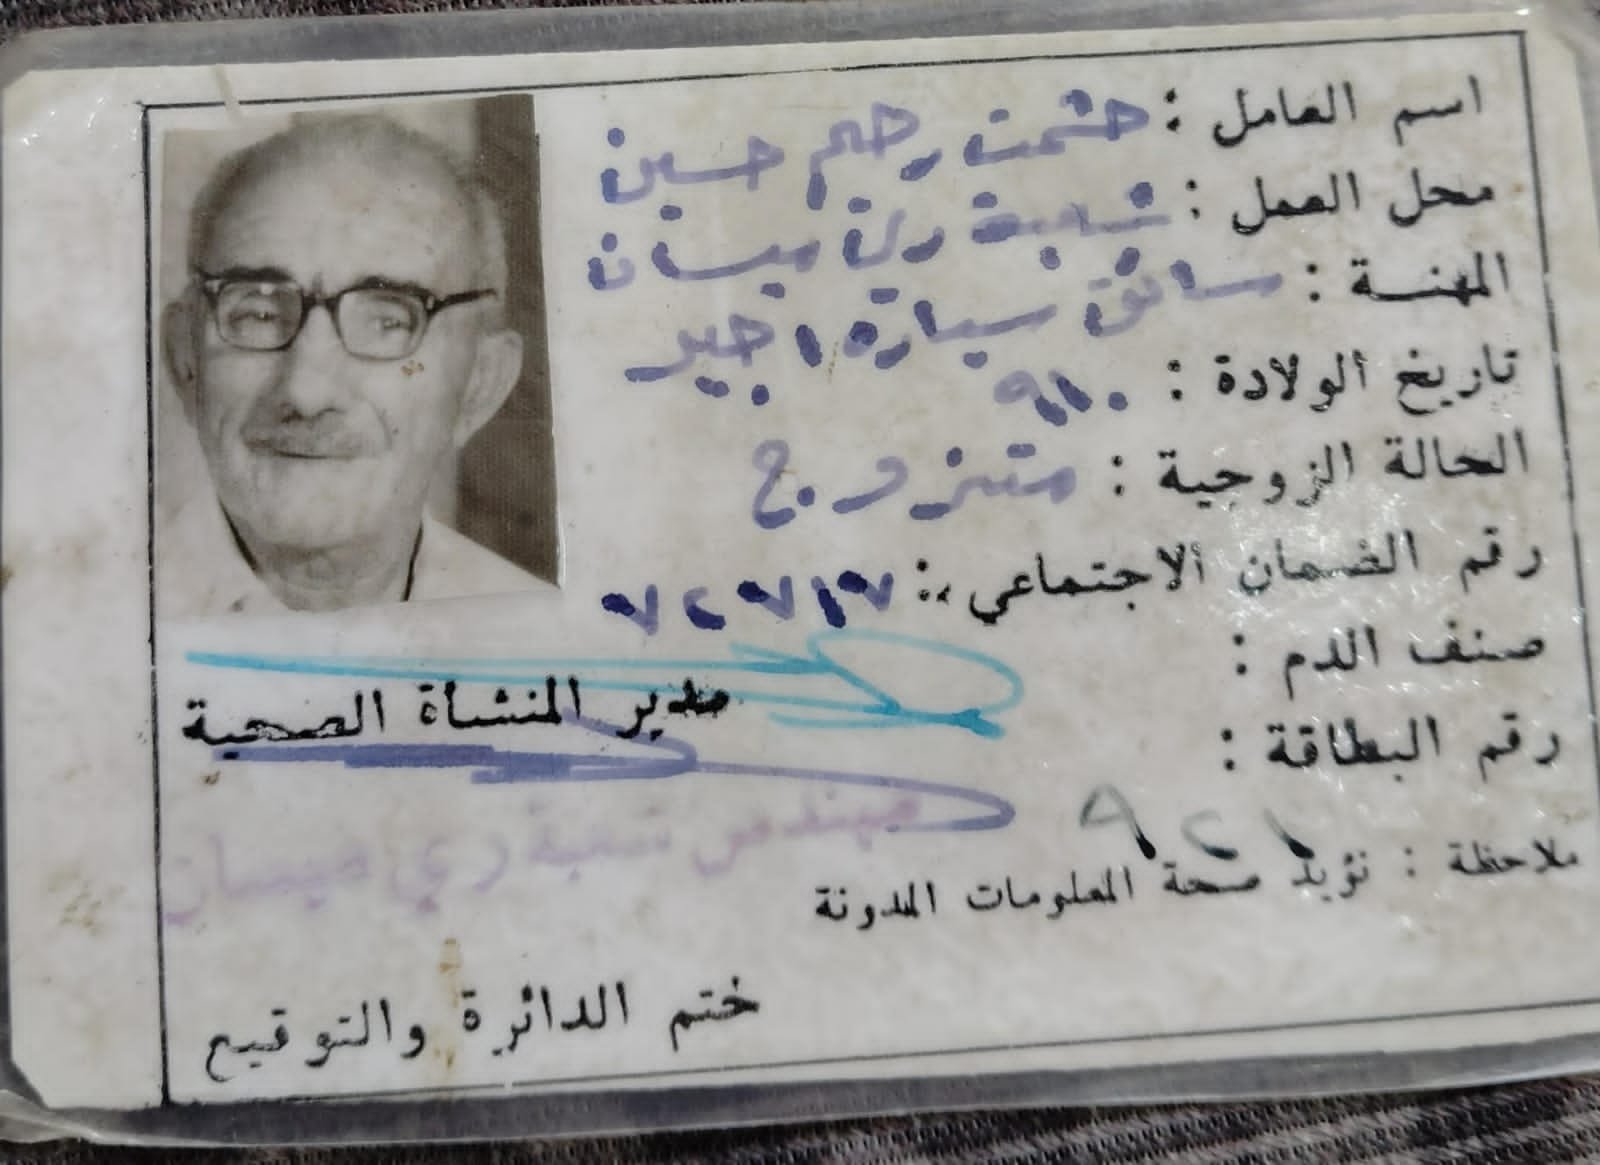 اسم العامل : حشمت رحيم حسين
محل العمل : شعبة ري ميسان
المهنة : سائق سيارة اجير
تاريخ الولادة : ٩١٠
الحالة الزوجية : متزوج
رقم الضمان الاجتماعي :
صنف الدم :
رقم البطاقة :
مدير المنشأة الصحية
مهندس شعبة ري ميسان
ملاحظة : نؤيد صحة المعلومات المدونة
ختم الدائرة والتوقيع